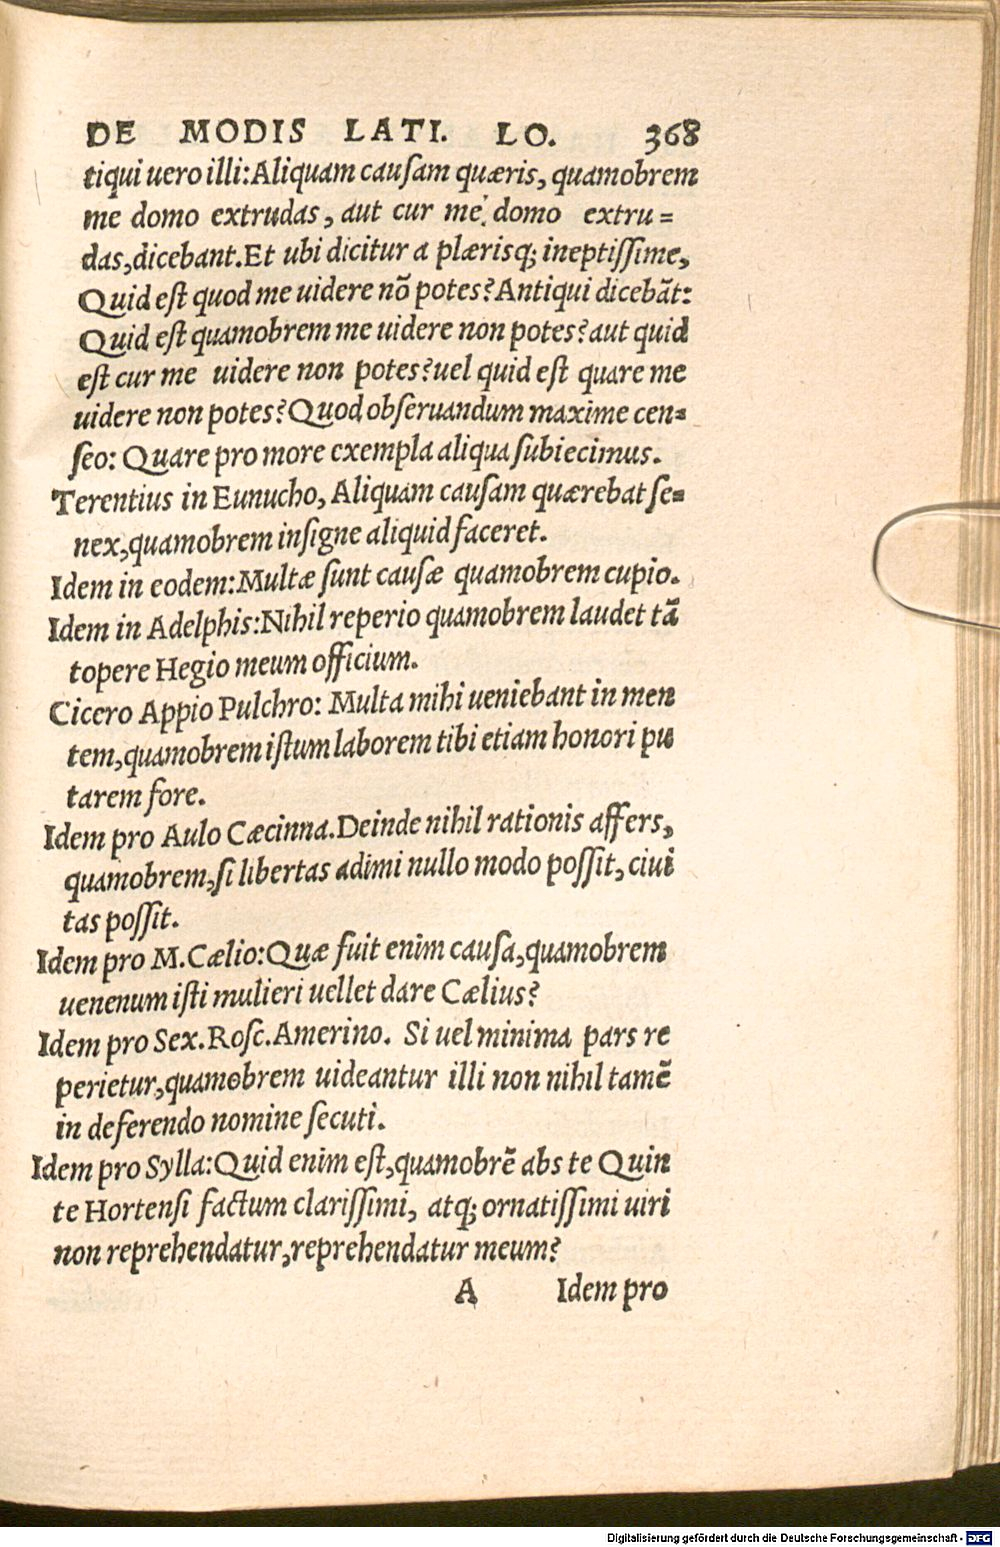 DE MODIS LATI. LO. 368
tiqui uero illi:Aliquam causam quæris, quamobrem
me domo extrudas, aut cur me domo extru=
das,dicebant.Et ubi dicitur a plærisq; ineptissime,
Quid est quod me uidere nõ potes? Antiqui dicebãt:
Quid est quamobrem me uidere non potes? aut quid
est cur me uidere non potes? uel quid est quare me
uidere non potes? Quod obseruandum maxime cen=
seo: Quare pro more exempla aliqua subiecimus.
Terentius in Eunucho, Aliquam causam quærebat se=
nex,quamobrem insigne aliquid faceret.
Idem in eodem:Multæ sunt causæ quamobrem cupio.
Idem in Adelphis:Nihil reperio quamobrem laudet tã
topere Hegio meum officium.
Cicero Appio Pulchro: Multa mihi ueniebant in men
tem,quamobrem istum laborem tibi etiam honori pu
tarem fore.
Idem pro Aulo Cæcinna.Deinde nihil rationis affers,
quamobrem,si libertas adimi nullo modo possit, ciui
tas possit.
Idem pro M.Cælio:Quæ fuit enim causa,quamobrem
uenenum isti mulieri uellet dare Cælius?
Idem pro Sex.Rosc.Amerino. Si uel minima pars re
perietur,quamobrem uideantur illi non nihil tamẽ
in deferendo nomine secuti.
Idem pro Sylla:Quid enim est,quamobrẽ abs te Quin
te Hortensi factum clarissimi, atq; ornatissimi uiri
non reprehendatur,reprehendatur meum?
A Idem pro
Digitalisierung gefördert durch die Deutsche Forschungsgemeinschaft - DFG